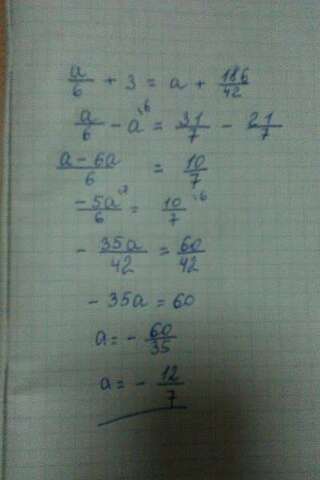 a/6 + 3 = a + 186/42
a/6 - a^{·6} = 31/7 - 21/7
(a - 6a)/6 = 10/7
-5a/6^{·7} = 10/7^{·6}
- 35a/42 = 60/42
- 35a = 60
a = - 60/35
a = - 12/7